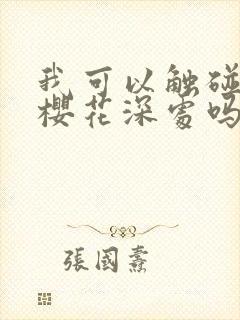 我可以触碰
樱花深处吗
張國燾